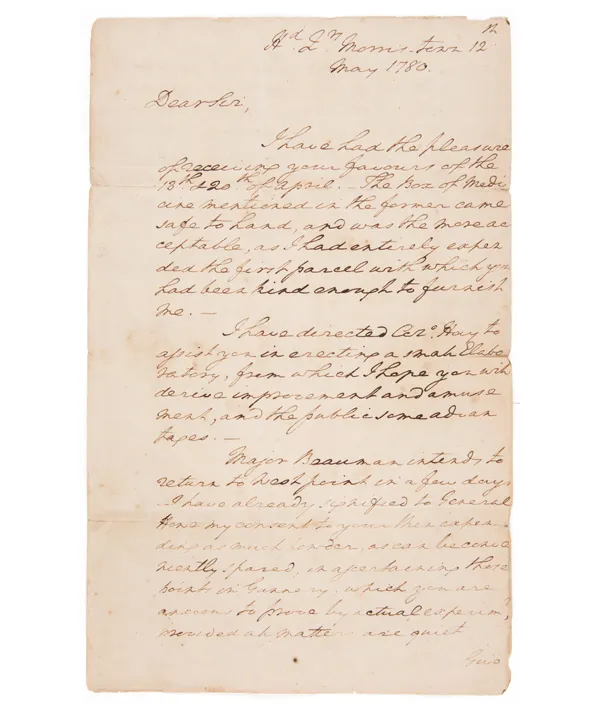 12
Hd. Qrs. Morris-town 12
May 1780.
Dear Sir,
I have had the pleasure
of receiving your favours of the
18th & 20th of April. The Box of Medi
cine mentioned in the former came
safe to hand, and was the more ac
ceptable, as I had entirely expen
ded the first parcel with which you
had been kind enough to furnish
me. —
I have directed Hay to
assist you in erecting a small Elabo
ratory, from which I hope you will
derive improvement and amuse
ment, and the public some advan
tages. —
Major Beauman intends to
return to West point in a few days
— I have already signified to General
Howe my consent to your then expen
ding as much powder, as can be conve
niently spared, in ascertaining those
points in Gunnery, which you are
anxious to prove by actual experimt,
provided all matters are quiet